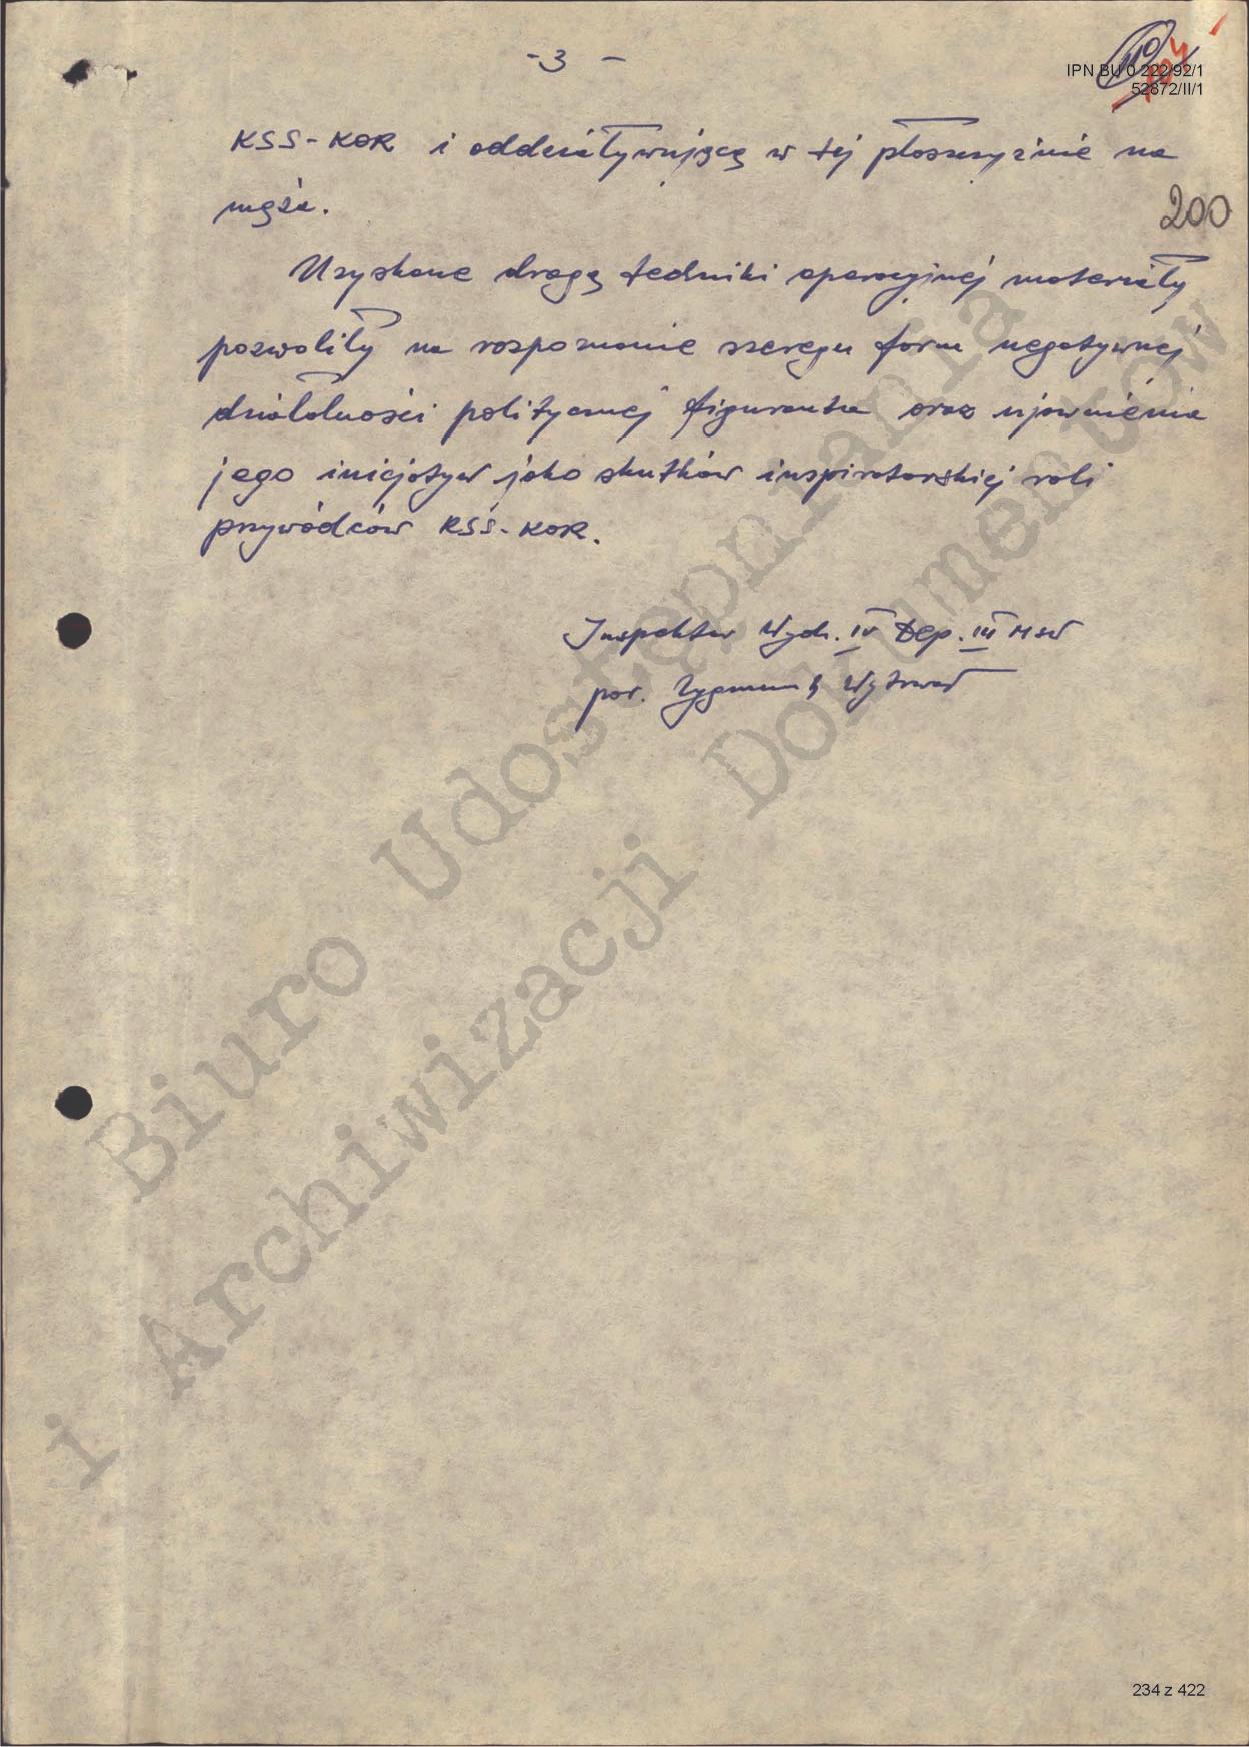 - 3 -
IPN BU 0 222/92/1
52872/II/1
KSS-KOR i oddziaływującą w tej płaszczyźnie na
męża.
200
Uzyskane drogą techniki operacyjnej materiały
pozwoliły na rozpoznanie szeregu form negatywnej
działalności politycznej figuranta oraz ujawnienia
jego inicjatyw jako skutków inspiratorskiej roli
przywódców KSS-KOR.
Inspektor Wydz. IV Dep. III MSW
por. Zygmunt
Biuro Udostępniania
i Archiwizacji Dokumentów
234 z 422